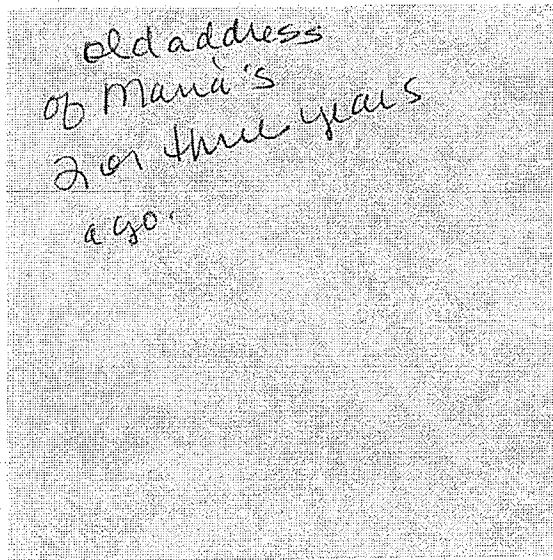 old address
of Maria's
2 or three years
ago.